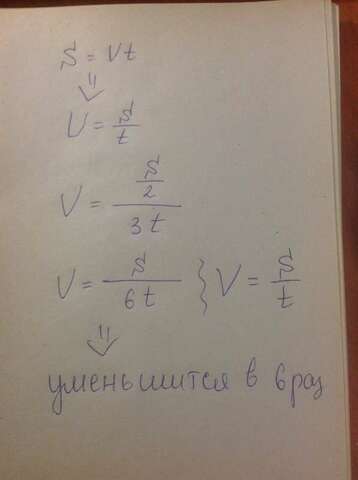 S = Vt
⇓
V = S/t
V = (S/2)/(3t)
V = S/(6t) } V = S/t
⇓
уменьшится в 6 раз